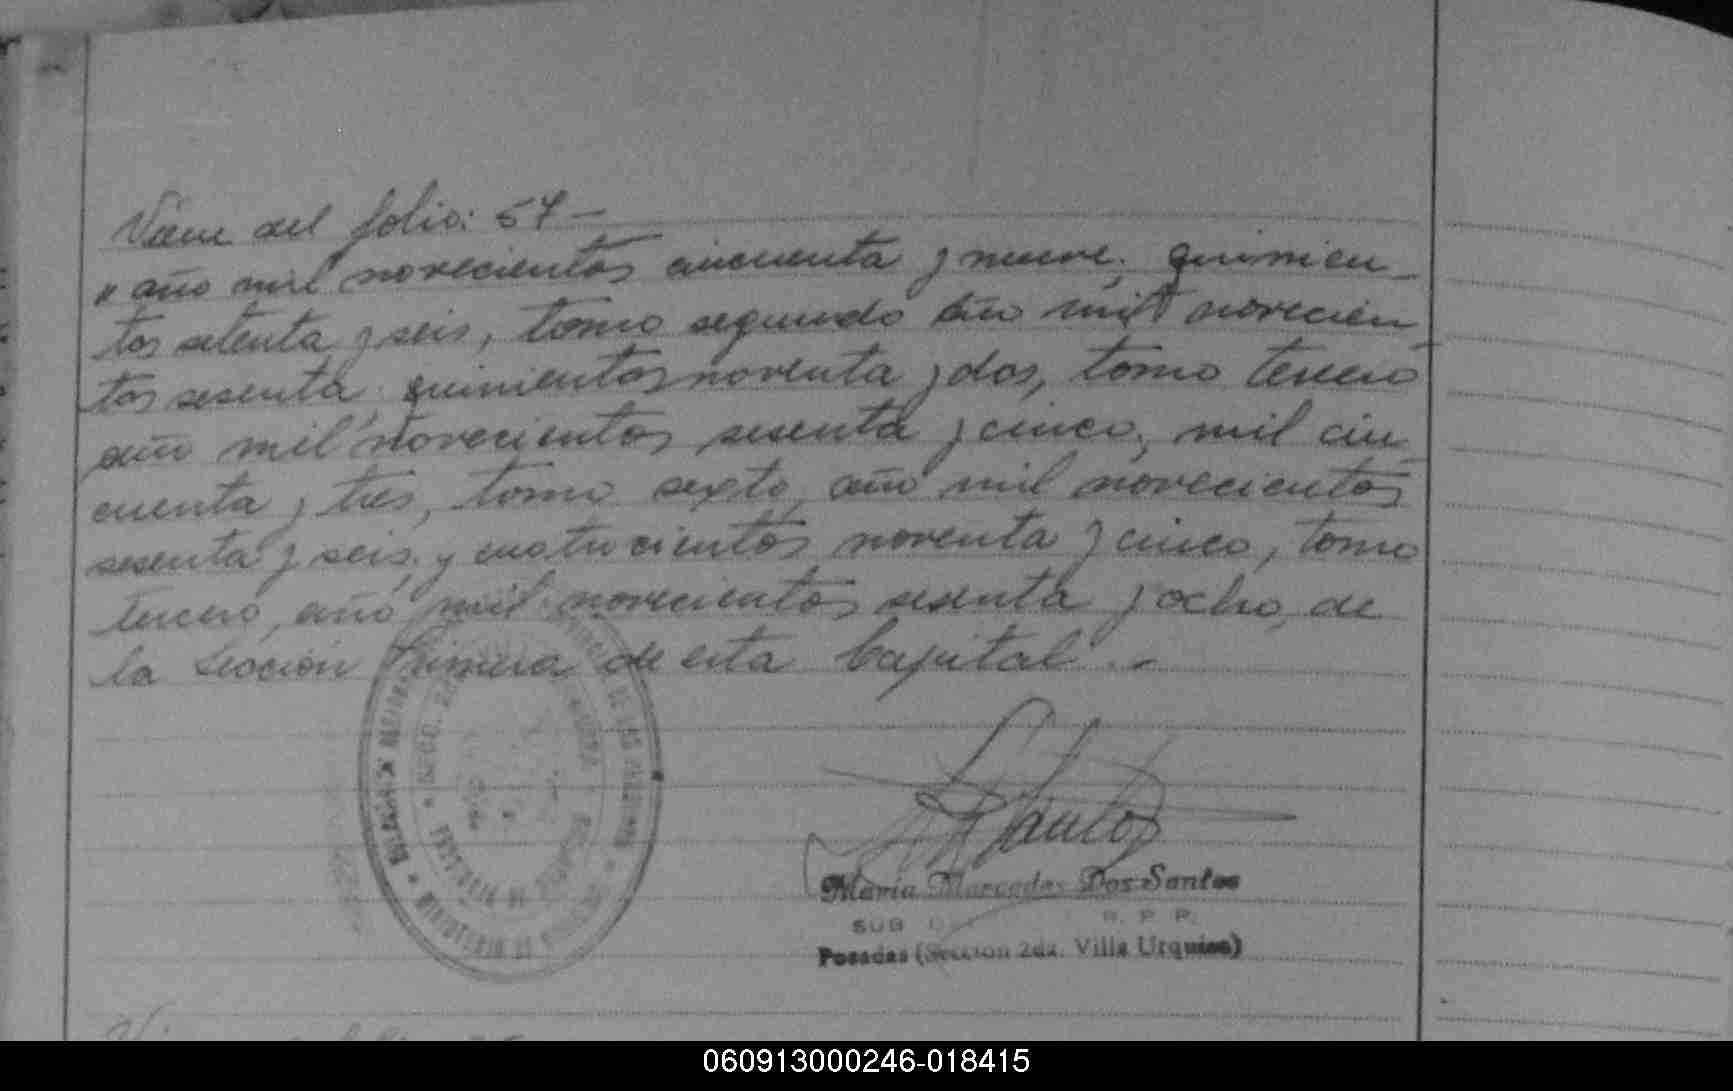 Viene del folio: 57 —
" año mil novecientos cincuenta y nueve; quinien-
tos setenta y seis, tomo segundo año mil novecien-
tos sesenta; quinientos noventa y dos, tomo tercero
año mil novecientos sesenta y cinco; mil cin-
cuenta y tres, tomo sexto, año mil novecientos
sesenta y seis, y cuatrocientos noventa y cinco, tomo
tercero, año mil novecientos sesenta y ocho, de
la Sección Primera de esta Capital.-
Santos
María Mercedes Dos Santos
SUB R. P. P.
Posadas (Sección 2da. Villa Urquiza)
SECC. 2
POSADAS
DE LAS PERSONAS
060913000246-018415